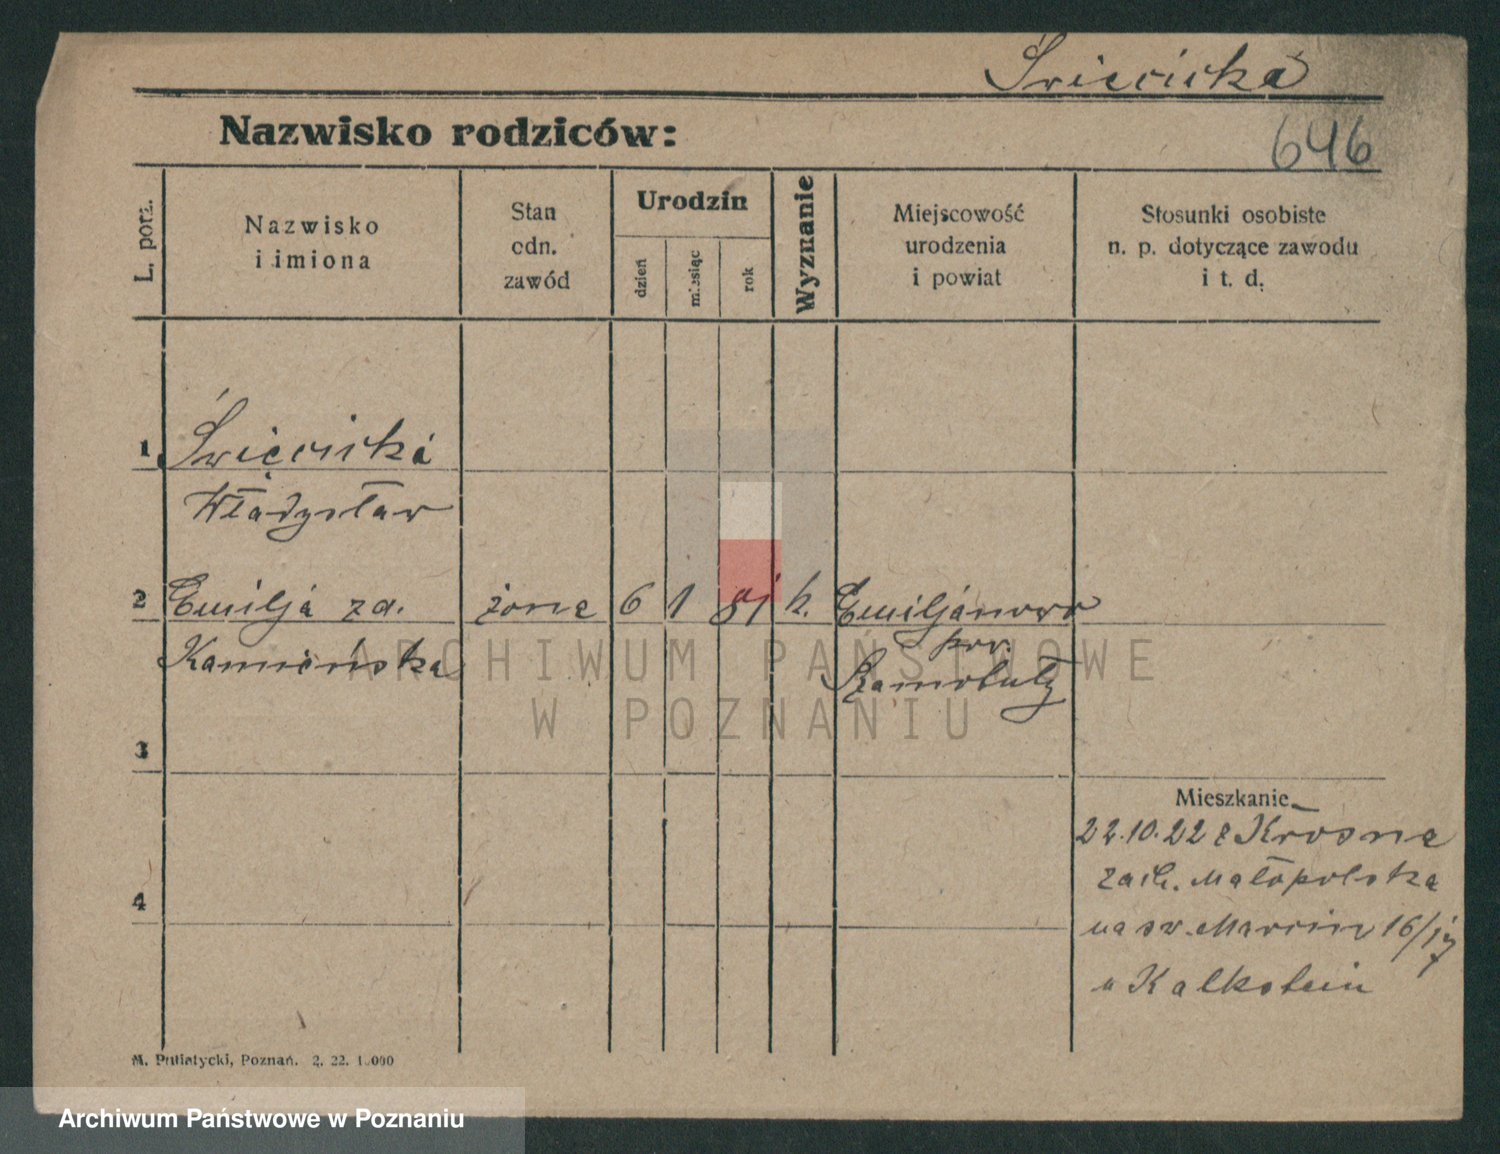 Święcicka
Nazwisko rodziców:
646
L. porz.
Nazwisko
i imiona
Stan
cdn.
zawód
Urodzin
dzień
miesiąc
rok
Wyznanie
Miejscowość
urodzenia
i powiat
Stosunki osobiste
n. p. dotyczące zawodu
i t. d.
1 Święcicka
Władysław
2 Emilja za. żona 6 1 81 k. Emiljanowo
Kamieńska pow.
Szamotuły
3
Mieszkanie
22.10.22 z Krosna
zach. Małopolska
na św. Marcin 16/17
u Kalkstein
4
M. Putiatycki, Poznań. 2. 22. 1.000
ARCHIWUM PAŃSTWOWE
W POZNANIU
Archiwum Państwowe w Poznaniu